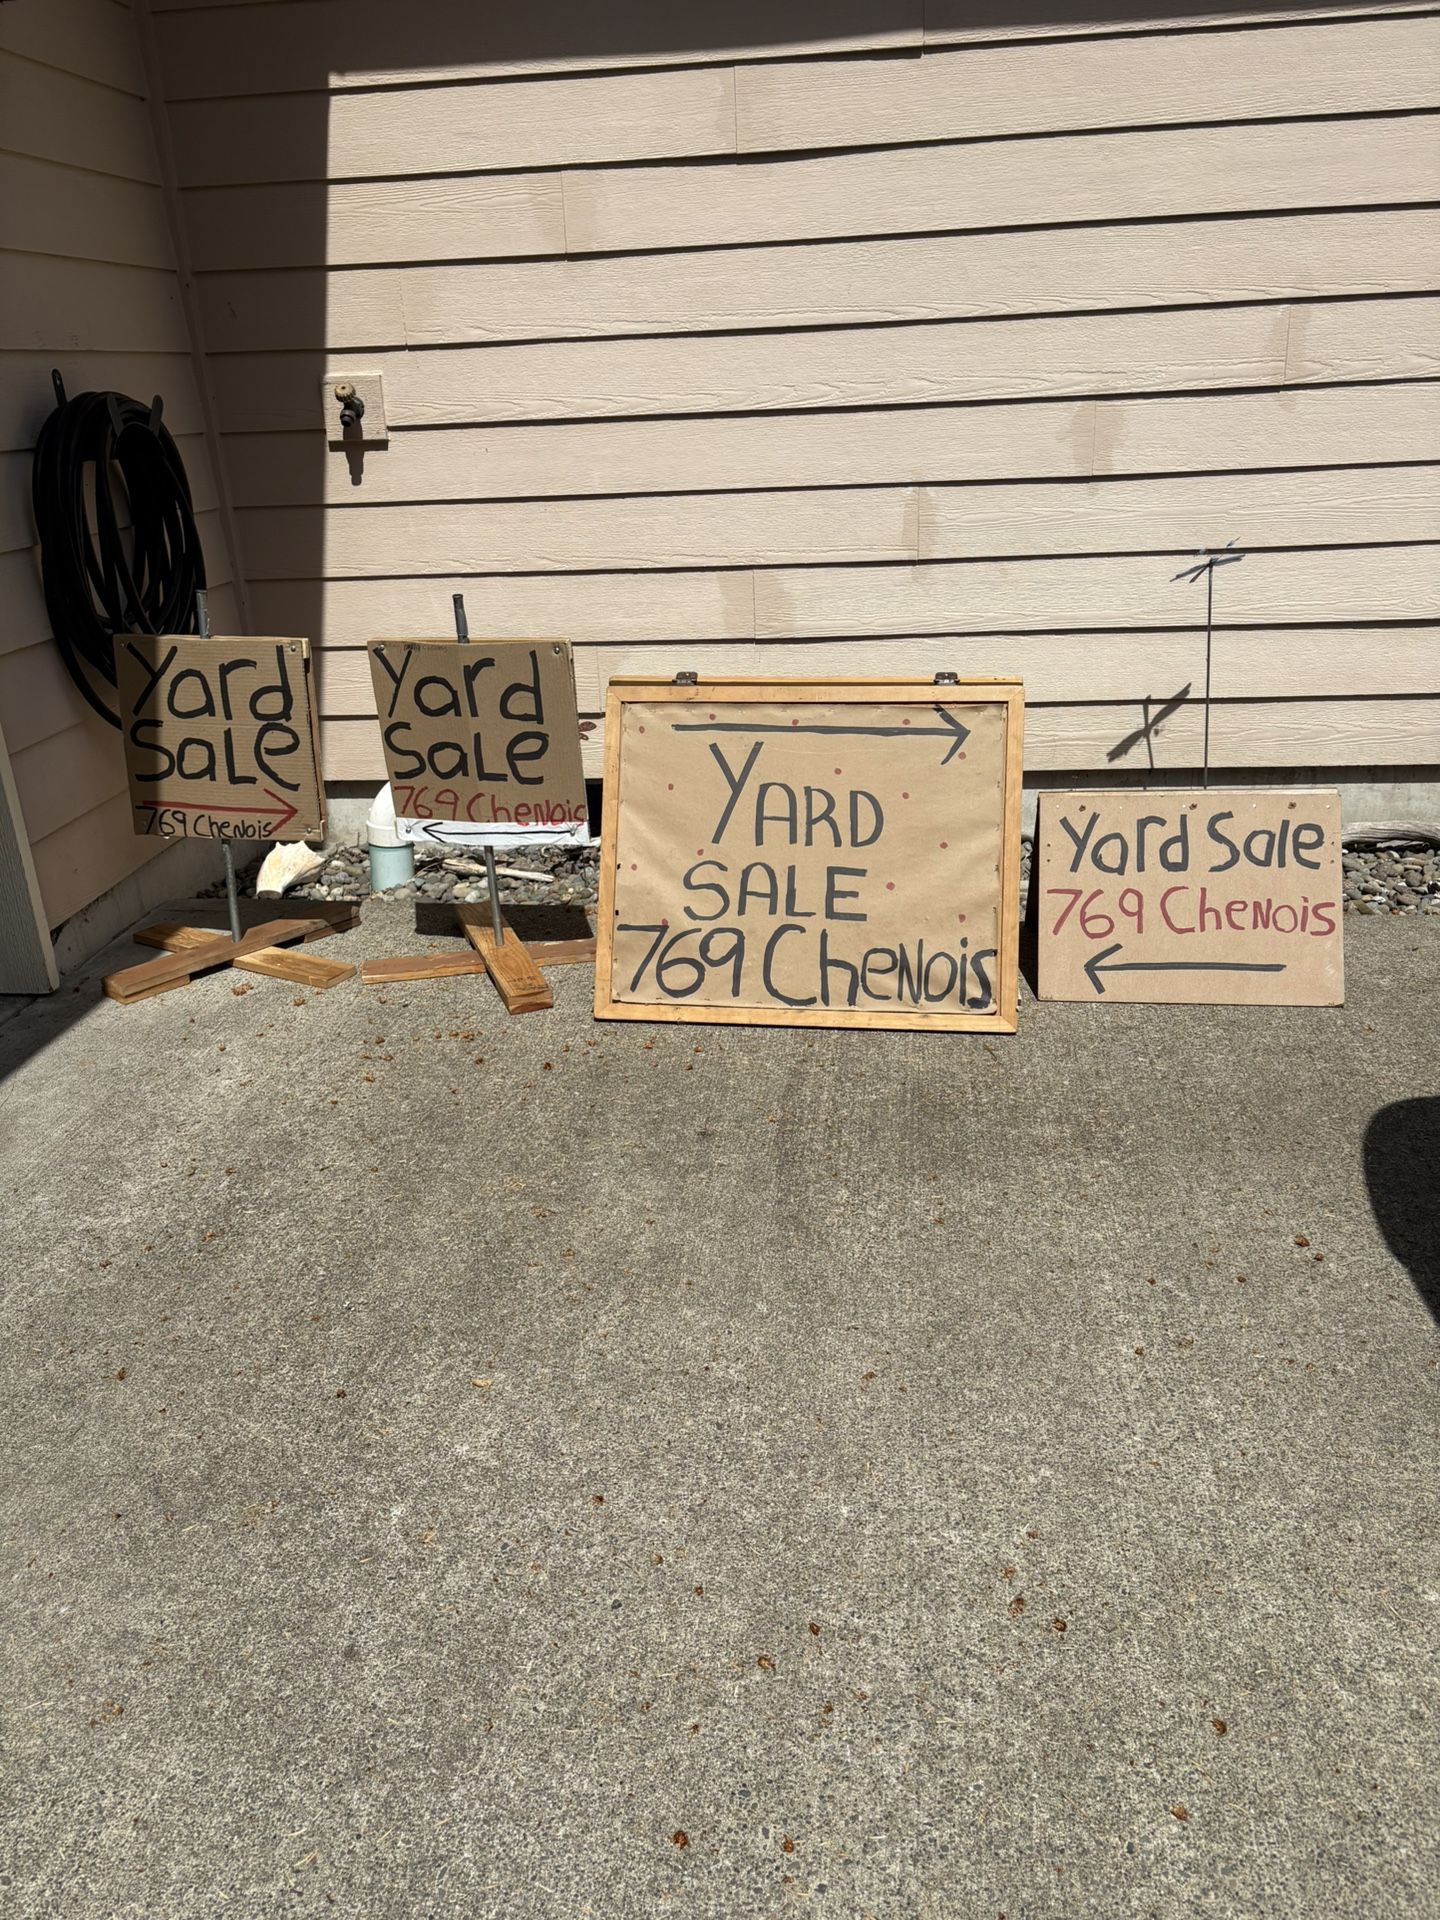 Yard
Sale
769 Chenois
Yard
Sale
769 Chenois
YARD
SALE
769 Chenois
Yard Sale
769 Chenois